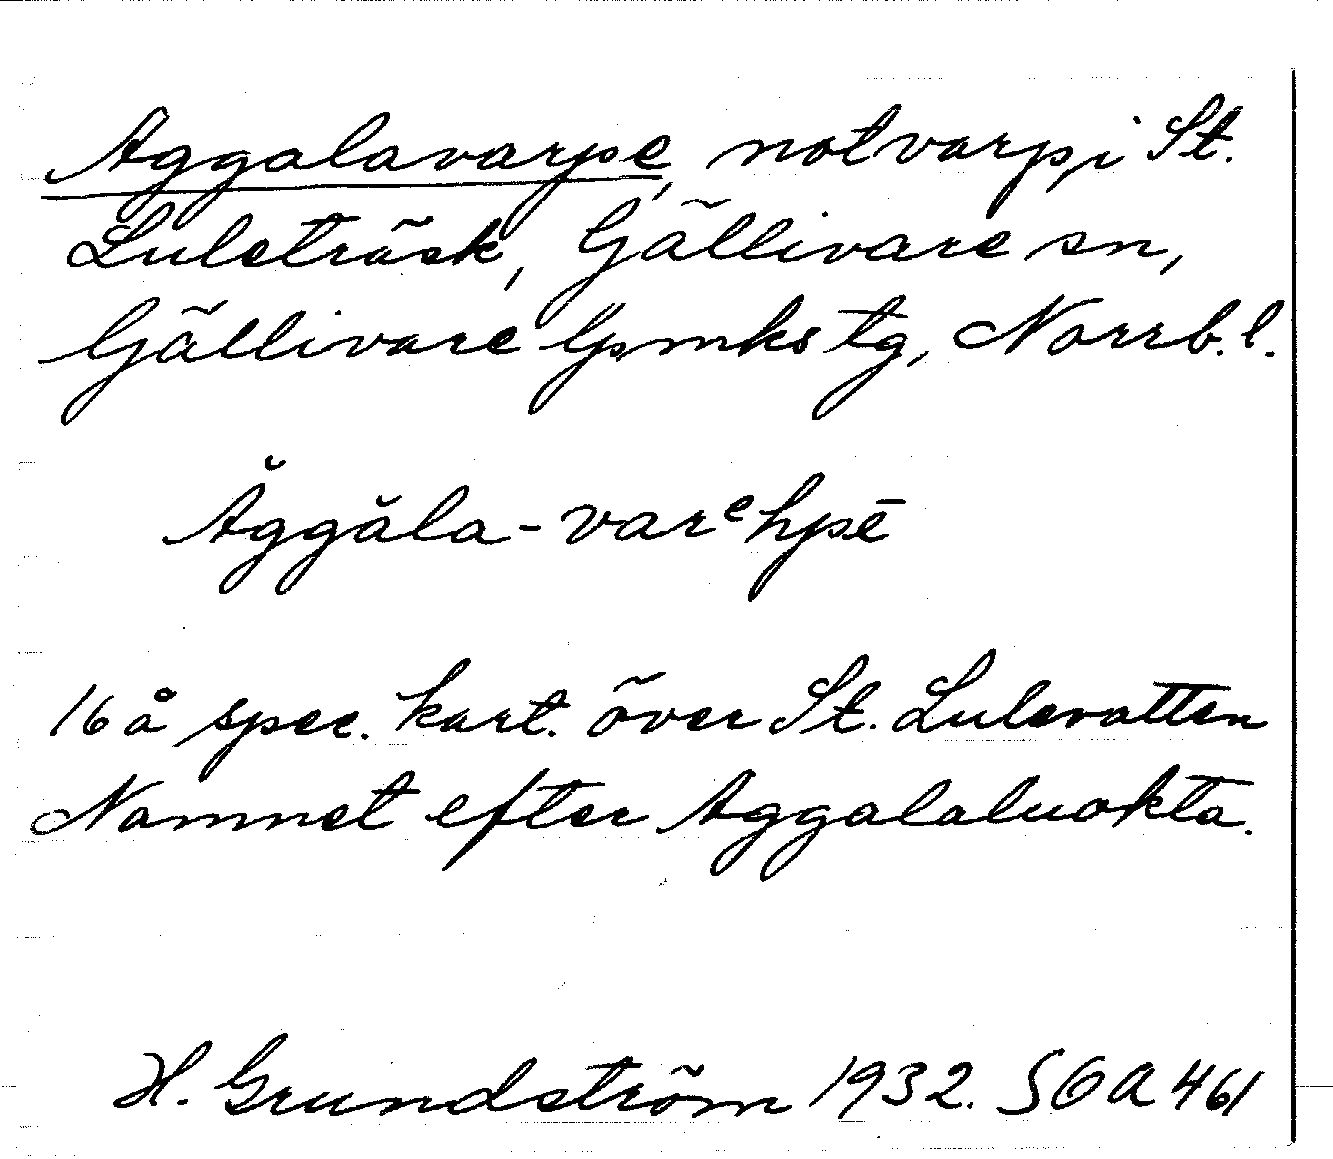 Aggalavarpe, notvarp i St.
Luleträsk, Gällivare sn,
Gällivare lpmks tg, Norrb. l.
Ăggăla-varᵉhpē
16 å spec. kart. över St. Lulevatten
Namnet efter Aggalaluokta.
H. Grundström 1932. SOA 461